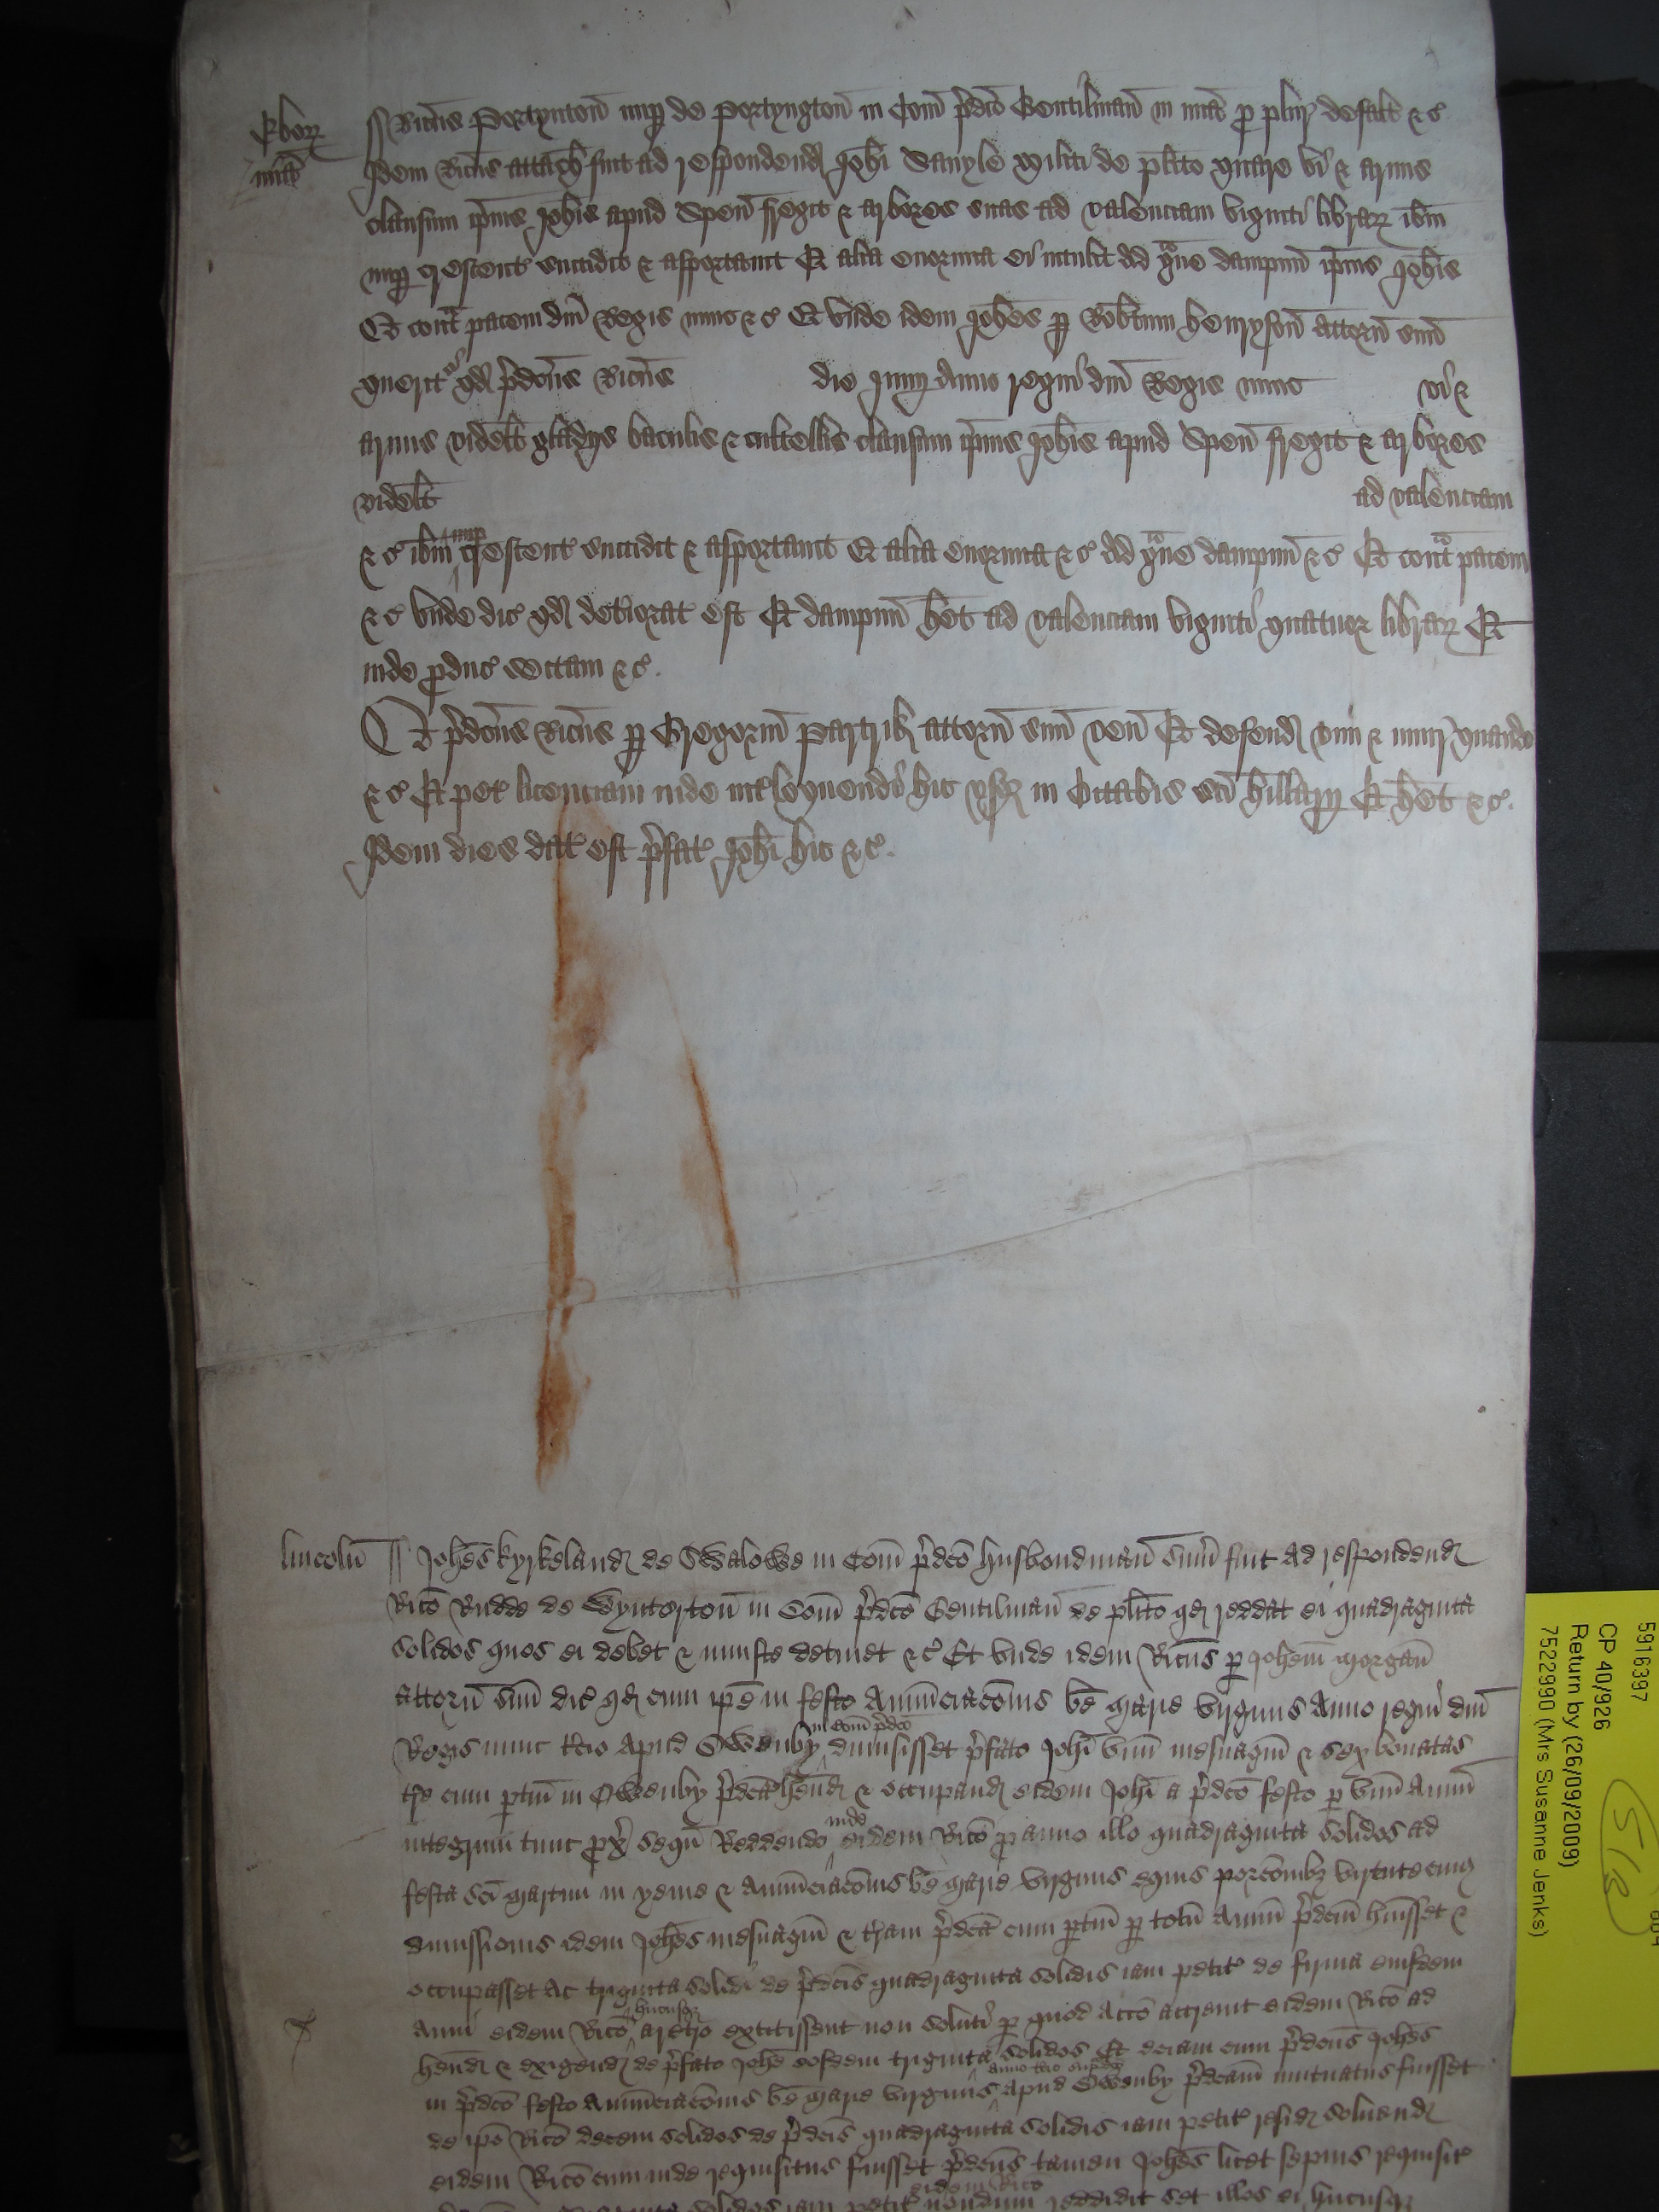 Ebor
mia
Ricus Portynton nup de Portyngton in Com pdco Gentilman in mia p plur defalt &c
Idem Ricus attach fuit ad respondend Johi Savyle Militi de plito quare vi & armis
clausum ipius Johis apud Spen fregit & arbores suas ad valenciam viginti librar ibm
nup crescent succidit & asportavit Et alia enormia ei intulit Ad gve dampnu ipius Johis
Et cont pacem dni Regis nunc &c Et unde idem Johes p Robtum Henryson attorn suu
querit qd pdcus Ricus die Junij Anno regni dni Regis nunc vi &
armis videlt gladijs baculis & cultellis clausum ipius Johis apud Spen fregit & arbores
videlt ad valenciam
&c ibm nup crescent succidit & asportavit Et alia enormia &c Ad gve dampnu &c Et cont pacem
&c unde dic qd deteriorat est Et dampnu het ad valenciam viginti quatuor librar Et
inde produc sectam &c.
Et pdcus Ricus p Gregoriu Partrik attorn suu ven Et defend vim & iniur quando
&c Et pet licenciam inde intloquendi hic usq in Octabis sci Hillarij Et het &c.
Idem dies dat est pfat Johi hic &c.
lincoln Johes kyrkeland de Swalowe in Com pdco husbondman sum fuit ad respondend
Rico Rudde de Wyntorton in Com pdco Gentilman de plito qd reddat ei quadraginta
solidos quos ei debet & iniuste detinet &c Et unde idem Ricus p Johem Morgan
attorn suu dic qd cum ipe in festo Annunciacois be Marie virginis Anno regni dni
Regis nunc tcio apud Owenby in com pdco dimisisset pfato Johi unu mesuagiu & sex bovatas
tre cum ptin in Owenby pdca hend & occupand eidem Johi a pdco festo p unu Annu
integrum tunc px sequ Reddendo inde eidem Rico p anno illo quadraginta solidos ad
festa sci Martini in yeme & Annunciacois be Marie virginis equis porcoibz virtute cuius
dimissionis idem Johes mesuagiu & tram pdca cum ptin p totu Annu pdcm huisset &
occupasset Ac triginta solidi de pdcis quadraginta solidis iam petit de firma eiusdem
Anni eidem Rico hucusq aretro extitissent non soluti p quod acco accrevit eidem Rico ad
hend & exigend de pfato Johe eosdem triginta solidos Et eciam cum pdcus Johes
in pdco festo Annunciacois be Marie virginis anno tcio supdco apud Owenby pdcam mutuatus fuisset
de ipo Rico decem solidos de pdcis quadraginta solidis iam petit resid solvend
eidem Rico cum inde requisitus fuisset pdcus tamen Johes licet sepius requisit
solidos iam petit eidem Rico nondum reddidit set illos ei hucusq
5916397
CP 40/926
Return by (26/09/2009)
7522990 (Mrs Susanne Jenks)